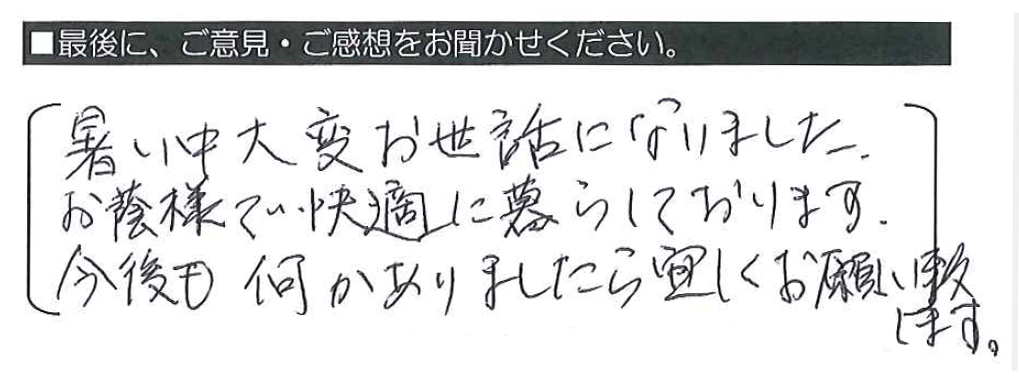 ■最後に、ご意見・ご感想をお聞かせください。
暑い中大変お世話になりました.
お蔭様で快適に暮らしております.
今後も何かありましたら宜しくお願い致
します。